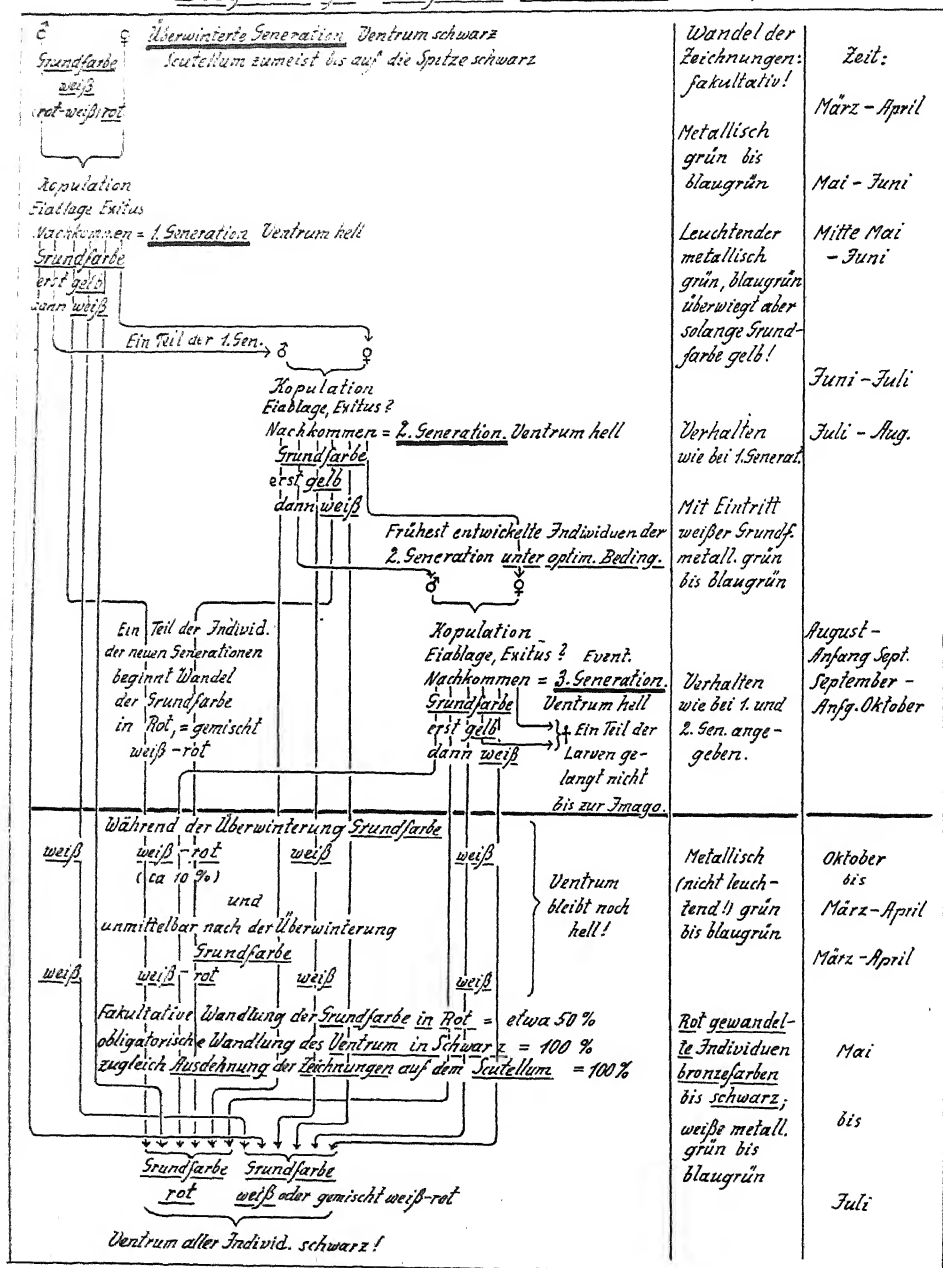 ♂ ♀ Überwinterte Generation Ventrum schwarz
Scutellum zumeist bis auf die Spitze schwarz
Grundfarbe
weiß
rot-weiß rot
Kopulation
Eiablage Exitus
Nachkommen = 1. Generation Ventrum hell
Grundfarbe
erst gelb
dann weiß
Ein Teil der 1. Gen. ♂ ♀
Kopulation
Eiablage, Exitus?
Nachkommen = 2. Generation. Ventrum hell
Grundfarbe
erst gelb
dann weiß
Frühest entwickelte Individuen der
2. Generation unter optim. Beding.
♂ ♀
Ein Teil der Individ.
der neuen Generationen
beginnt Wandel
der Grundfarbe
in Rot, = gemischt
weiß-rot
Kopulation
Eiablage, Exitus? Event.
Nachkommen = 3. Generation.
Grundfarbe Ventrum hell
erst gelb
dann weiß
† Ein Teil der
Larven ge-
langt nicht
bis zur Imago.
Während der Überwinterung Grundfarbe
weiß weiß-rot weiß weiß
(ca 10 %)
und
unmittelbar nach der Überwinterung
Grundfarbe
weiß weiß-rot weiß weiß
Ventrum
bleibt noch
hell!
Fakultative Wandlung der Grundfarbe in Rot = etwa 50 %
obligatorische Wandlung des Ventrum in Schwarz = 100 %
zugleich Ausdehnung der Zeichnungen auf dem Scutellum = 100%
Grundfarbe Grundfarbe
rot weiß oder gemischt weiß-rot
Ventrum aller Individ. schwarz!
Wandel der
Zeichnungen:
fakultativ!
Metallisch
grün bis
blaugrün
Leuchtender
metallisch
grün, blaugrün
überwiegt aber
solange Grund-
farbe gelb!
Verhalten
wie bei 1. Generat.
Mit Eintritt
weißer Grundf.
metall. grün
bis blaugrün
Verhalten
wie bei 1. und
2. Gen. ange-
geben.
Metallisch
(nicht leuch-
tend!) grün
bis blaugrün
Rot gewandel-
te Individuen
bronzefarben
bis schwarz;
weiße metall.
grün bis
blaugrün
Zeit:
März - April
Mai - Juni
Mitte Mai
- Juni
Juni - Juli
Juli - Aug.
August -
Anfang Sept.
September -
Anfg. Oktober
Oktober
bis
März-April
März-April
Mai
bis
Juli